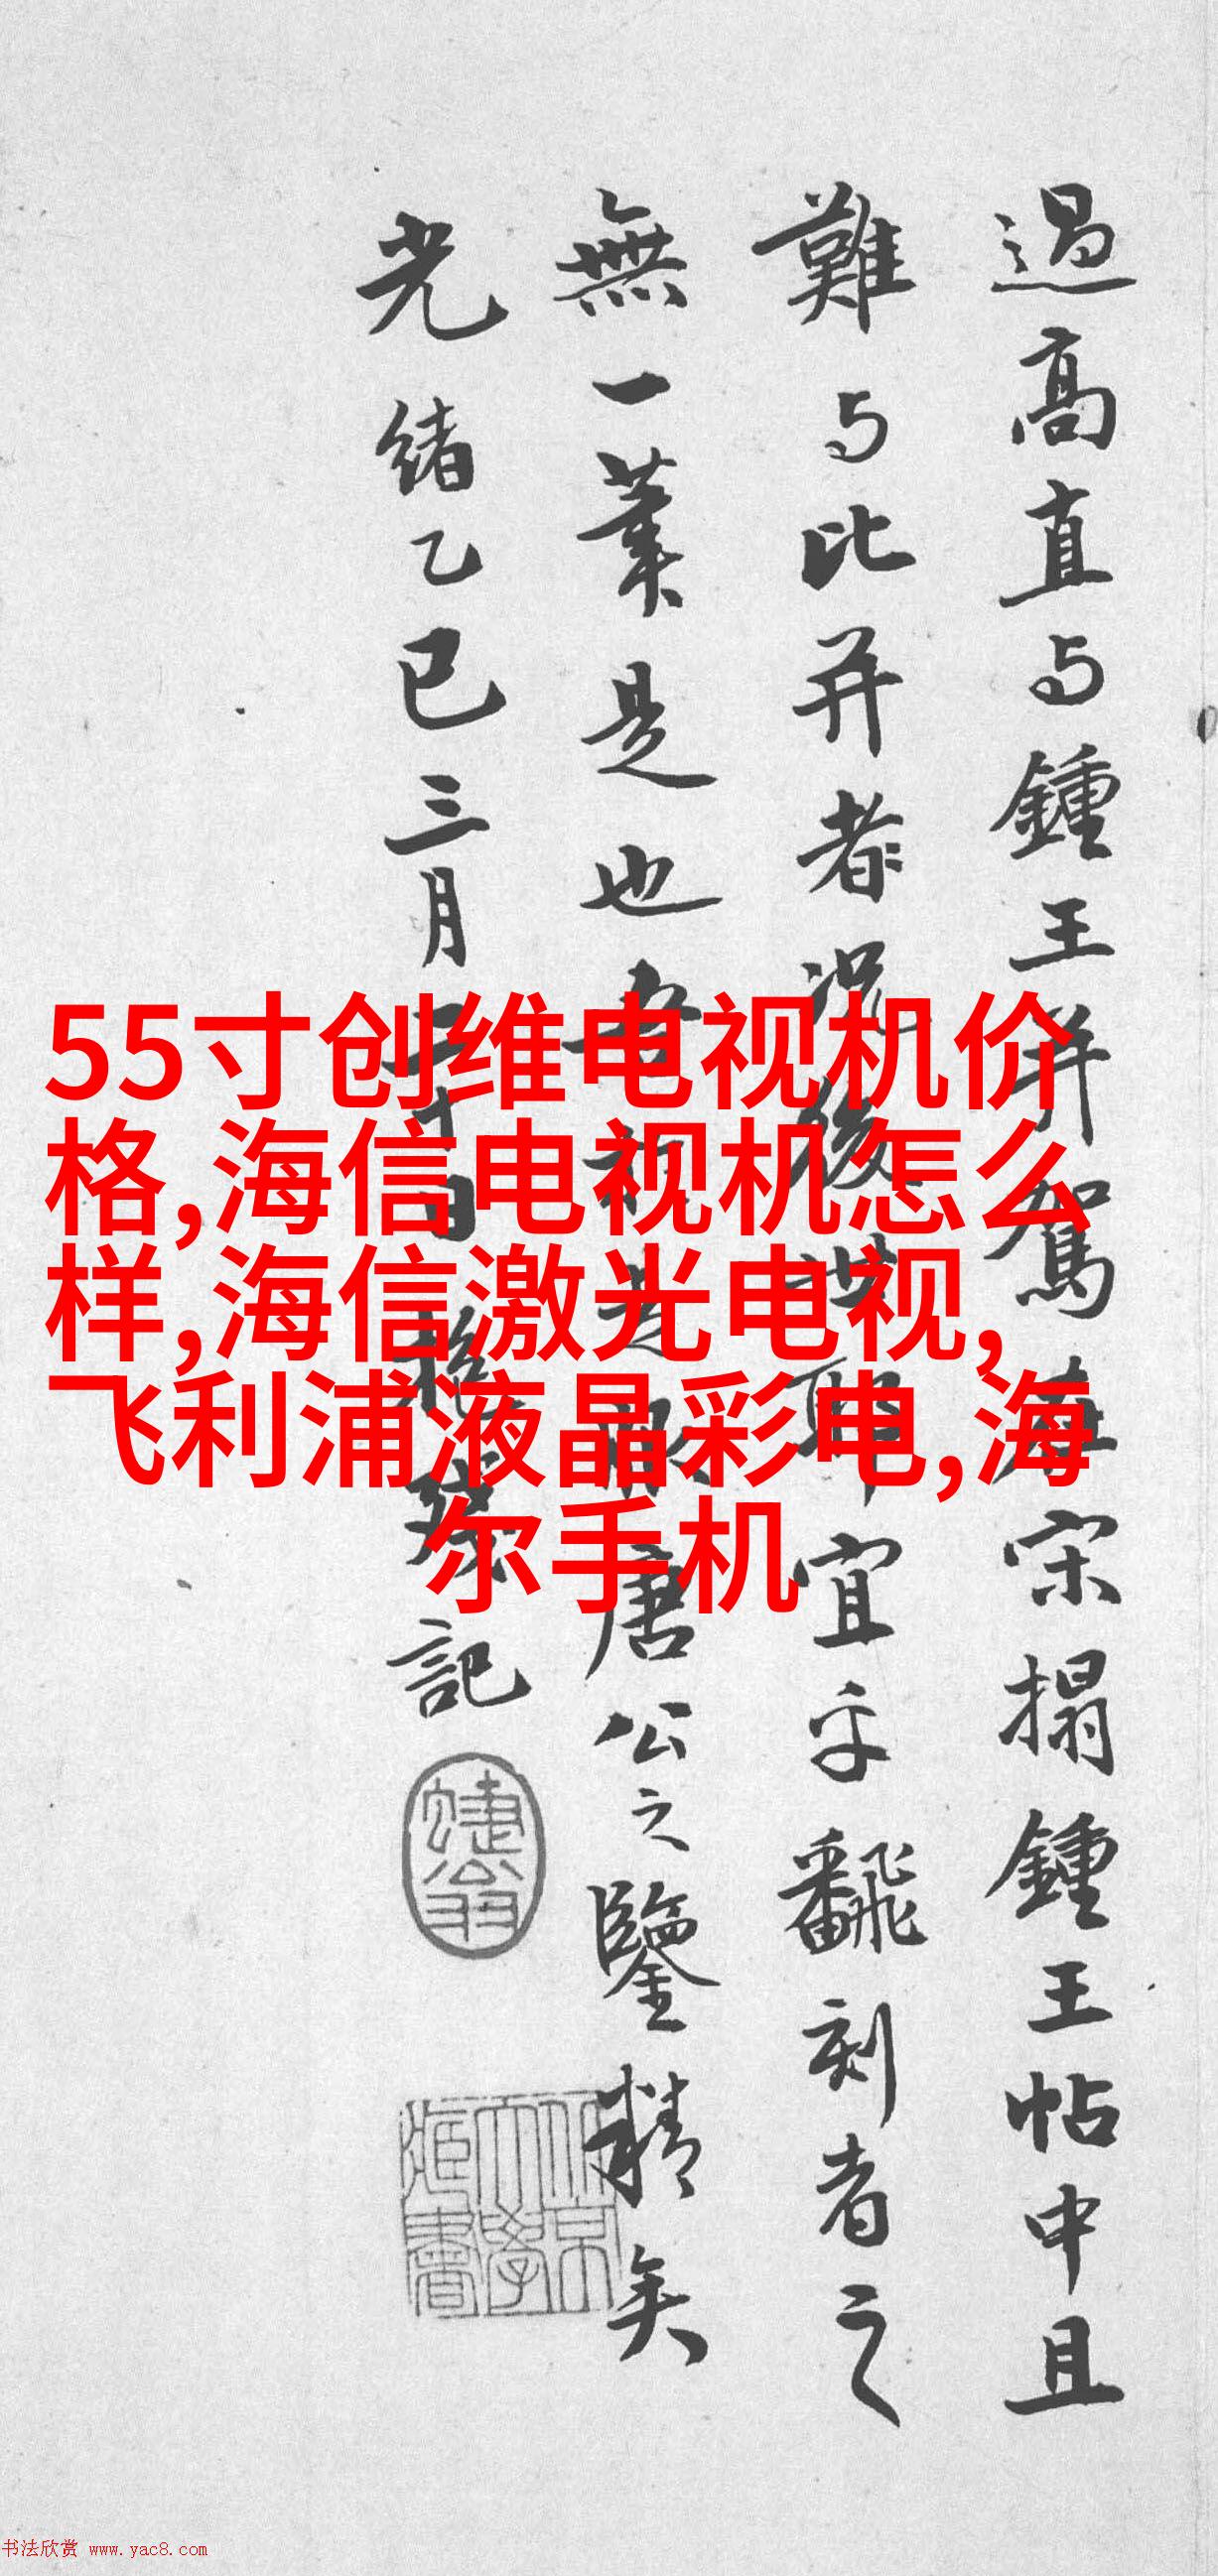 過高直与鍾王并駕每宋搨鍾王帖中且
難与比并者況後世耶宜乎翻刻者之
無一業是也
唐公之鑒精矣
光緒乙巳三月二十日
記
55寸创维电视机价
格,海信电视机怎么
样,海信激光电视,
飞利浦液晶彩电,海
尔手机
书法欣赏 www.yac8.com